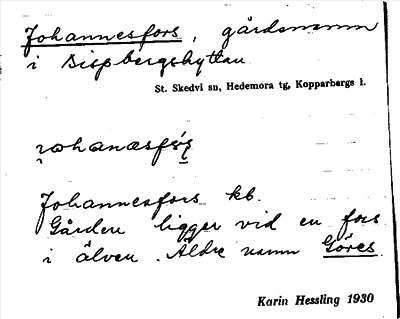 Johannesfors, gårdsnamn
i Bispbergshyttan
St. Skedvi sn, Hedemora tg, Kopparbergs l.
Johannesfors kb.
Gården ligger vid en fors
i älven. Äldre namn Göres
Karin Hessling 1930